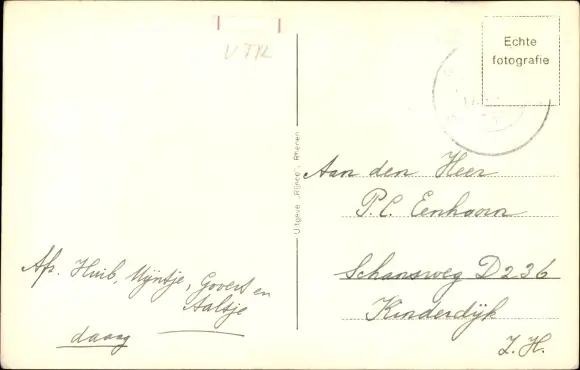 V TR
Echte
fotografie
Uitgave „Rijnco", Rhenen
Aan den Heer
P.C. Eenhoorn
Schansweg D236
Kinderdijk
Z.H.
Afz. Huib, Mijntje, Govert en
Aaltje
daag